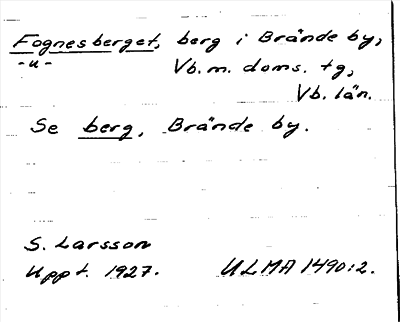 Fognesberget, berg i Brände by,
-u- Vb. m. doms. tg,
Vb. län.
Se berg, Brände by.
S. Larsson
Uppt. 1927. ULMA 1490:2.